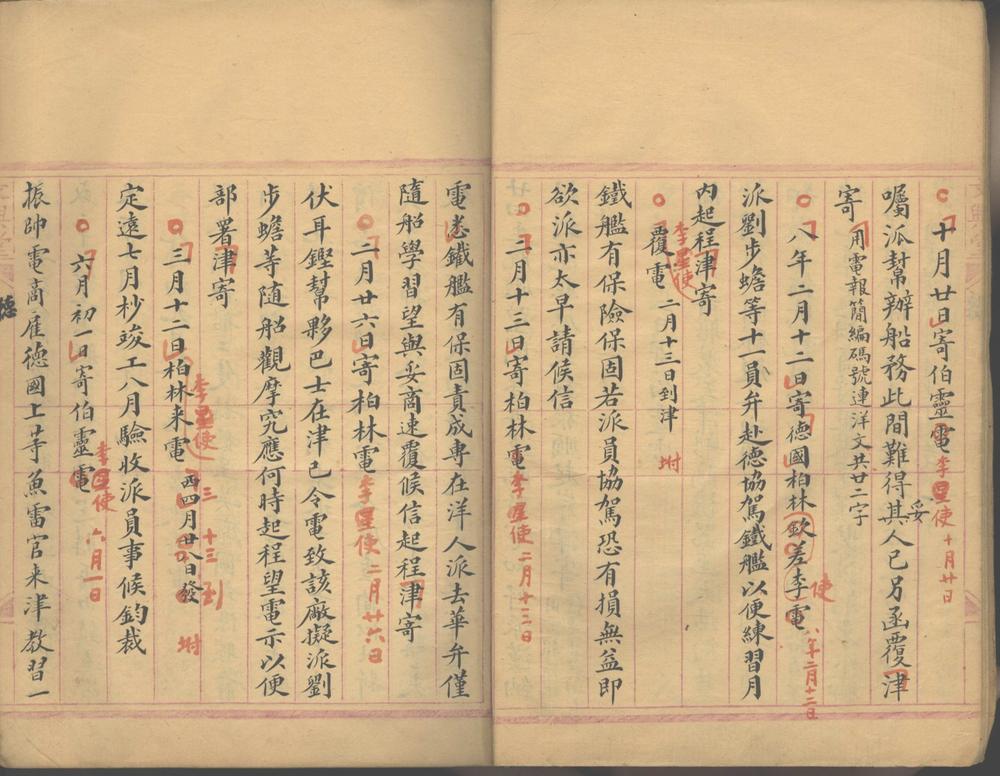 十月廿日寄伯靈電 李星使 十月廿日
囑派幫辦船務此間難得其人已另函覆津
妥
寄 用電報簡編碼號連洋文共廿二字
八年二月十二日寄德國柏林欽差李電 使 八年二月十二日
派劉步蟾等十一員弁赴德協駕鐵艦以便練習月
內起程津寄
覆電 李星使 二月十三日到津 坿
鐵艦有保險保固若派員協駕恐有損無益即
欲派亦太早請候信
二月十三日寄柏林電 李星使 二月十三日
電悉鐵艦有保固責成專在洋人派去華弁僅
隨船學習望與妥商速覆候信起程津寄
二月廿六日寄柏林電 李星使 二月廿六日
伏耳鏗幫夥巴士在津已令電致該廠擬派劉
步蟾等隨船觀摩究應何時起程望電示以便
部署津寄
三月十二日柏林來電 李星使 西四月廿八日發 三 十三 到 坿
定遠七月杪竣工八月驗收派員事候鈞裁
六月初一日寄伯靈電 李星使 六月一日
振帥電商雇德國上等魚雷官來津教習一
德